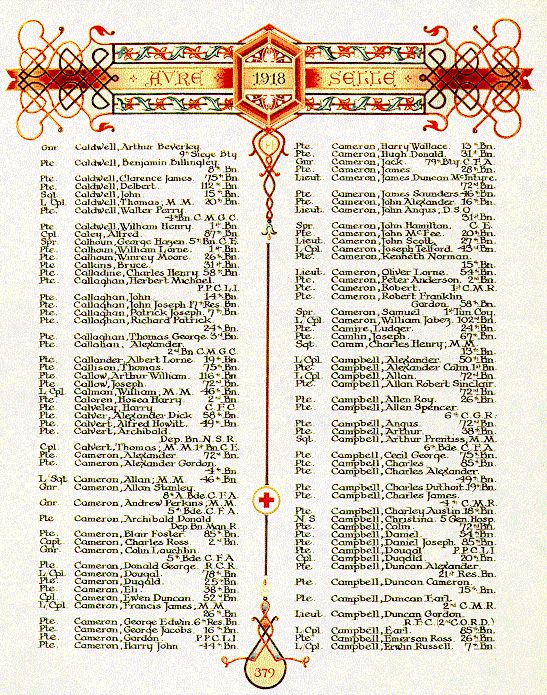 AVRE 1918 SELLE
Gnr Caldwell, Arthur Beverley
9th Siege Bty
Pte Caldwell, Benjamin Billingley
8th Bn
Pte Caldwell, Clarence James 75th Bn.
Pte Caldwell, Delbert 112th Bn.
Sgt Caldwell, John 15th Bn.
L Cpl Caldwell, Thomas; M. M. 20th Bn.
Pte Caldwell, Walter Perry
4th Bn. C. M. G. C.
Pte Caldwell, William Henry 1st Bn.
Cpl Caley, Alfred 87th Bn.
Spr Calhoun, George Hazen 5th Bn. C. E.
Pte Calhoun, William Lorne 1st Bn.
Pte Calhoun, Winrey Moore 26th Bn.
Pte Calkins, Bruce 31st Bn.
Pte Calladine, Charles Henry 58th Bn
Pte Callaghan, Herbert Michael
P. P. C. L. I.
Pte Callaghan, John 14th Bn.
Pte Callaghan, John Joseph 17th Res. Bn.
Pte Callaghan, Patrick Joseph 7th Bn.
Pte Callaghan, Richard Patrick
24th Bn.
Pte Callaghan, Thomas George 3rd Bn.
Pte Callahan, Alexander
2nd Bn. C. M. G. C.
Pte Callander, Albert Lorne 19th Bn.
Pte Callison, Thomas 75th Bn.
Pte Callow, Arthur William 116th Bn.
Pte Callow, Joseph 72nd Bn.
L Cpl Calman, William, M. M. 46th Bn.
Pte Calveren, Hosea Harry 2nd Bn.
Pte Calveley, Harry C. F. C.
Pte Calver, Alexander Dick 58th Bn.
Pte Calvert, Alfred Howitt 49th Bn.
Pte Calvert, Archibald
Dep. Bn. N. S. R.
Cpl Calvert, Thomas; M. M. 1st Bn. C. E.
Pte Cameron, Alexander 72nd Bn.
Pte Cameron, Alexander Gordon
4th Bn.
L Sgt Cameron, Allan; M. M. 46th Bn.
Gnr Cameron, Allan Stanley
8th A. Bde. C. F. A.
Gnr Cameron, Andrew Perkins; M. M.
5th Bde. C. F. A.
Pte Cameron, Archibald Donald
Dep Bn. Man R.
Pte Cameron, Blair Foster 85th Bn.
Capt Cameron, Charles Ross 2nd Bn.
Gnr. Cameron, Colin Lauchlin
5th Bde. C. F. A.
Pte Cameron, Donald George R. C. R.
L Cpl Cameron, Dougal 78th Bn.
Pte Cameron, Dugald 25th Bn.
Pte Cameron, Eli 38th Bn.
Cpl Cameron, Ewen Duncan 52nd Bn.
L Cpl Cameron, Francis James; M. M.
26th Bn.
Pte Cameron, George Edwin 6th Res Bn.
Pte Cameron, George Jacobs 16th Bn.
Pte Cameron, Gordon P. P. C. L. I.
Pte Cameron, Harry John 44th Bn.
Pte. Cameron, Harry Wallace 13th Bn.
Pte. Cameron, Hugh Donald 31st Bn.
Gnr Cameron, Jack 79th Bty. C. F. A.
Pte Cameron, James 28th Bn.
Lieut Cameron, James Duncan McIntyre
72nd Bn.
Pte Cameron, James Saunders 46th Bn.
Pte Cameron, John Alexander 16th Bn.
Lieut Cameron, John Angus; D. S. O.
31st Bn.
Spr Cameron, John Hamilton C. E.
Pte Cameron, John McFee 20th Bn.
Lieut. Cameron, John Scott 27th Bn.
L Cpl Cameron, Joseph Telford 43rd Bn.
Pte Cameron, Kenneth Norman
15th Bn.
Lieut Cameron, Oliver Lorne 54th Bn.
Pte Cameron, Peter Anderson 2nd Bn.
Pte Cameron, Robert 1st C. M. R.
Pte Cameron, Robert Franklin
Gordon 58th Bn.
Spr. Cameron, Samuel 1st Tun Coy.
L Cpl Cameron, William Jabez 102nd Bn.
Pte Camire, Ludger 24th Bn.
Pte Camlin, Joseph 67th Bn.
Sgt Camm, Charles Henry; M. M.
13th Bn.
L Cpl Campbell, Alexander 50th Bn.
Pte Campbell, Alexander Colin 1st Bn.
L Cpl Campbell, Allan 72nd Bn.
Pte Campbell, Allan Robert Sinclair
72nd Bn.
Pte Campbell, Allen Roy 26th Bn.
Pte Campbell, Allen Spencer
6th C. G. R.
Pte Campbell, Angus 72nd Bn.
Pte Campbell, Arthur 38th Bn.
Sgt Campbell, Arthur Prentiss, M. M.
6th Bde. C. F. A.
Pte Campbell, Cecil George 75th Bn.
Pte Campbell, Charles 85th Bn.
Pte Campbell, Charles Alexander
49th Bn.
Pte Campbell, Charles Duthoit 19th Bn.
Pte Campbell, Charles James
4th C. M. R.
Pte Campbell, Charley Austin 18th Bn.
N S Campbell, Christina 5 Gen. Hosp.
Pte Campbell, Colin 72nd Bn.
Pte Campbell, Daniel 54th Bn.
Pte Campbell, Daniel Joseph 85th Bn.
Pte Campbell, Dougal P. P. C. L. I
Cpl Campbell, Dugald 20th Bn.
Pte Campbell, Duncan Alexander
21st Res. Bn.
Pte Campbell, Duncan Cameron
15th Bn.
Pte Campbell, Duncan Earl
2nd C. M. R.
Lieut Campbell, Duncan Gordon
R. F. C. (2nd C. O. R. D.)
L Cpl Campbell, Earl 85th Bn.
Pte Campbell, Emerson Ross 26th Bn.
L Cpl Campbell, Erwin Russell 7th Bn.
379